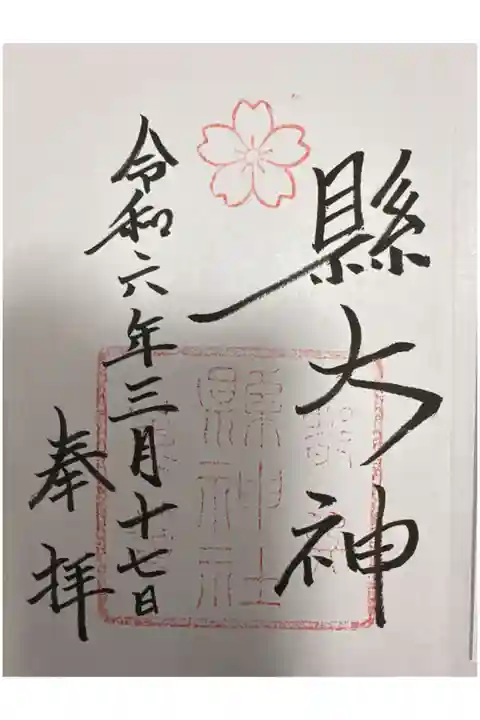 縣大神
令和六年三月十七日
奉拝
縣神社